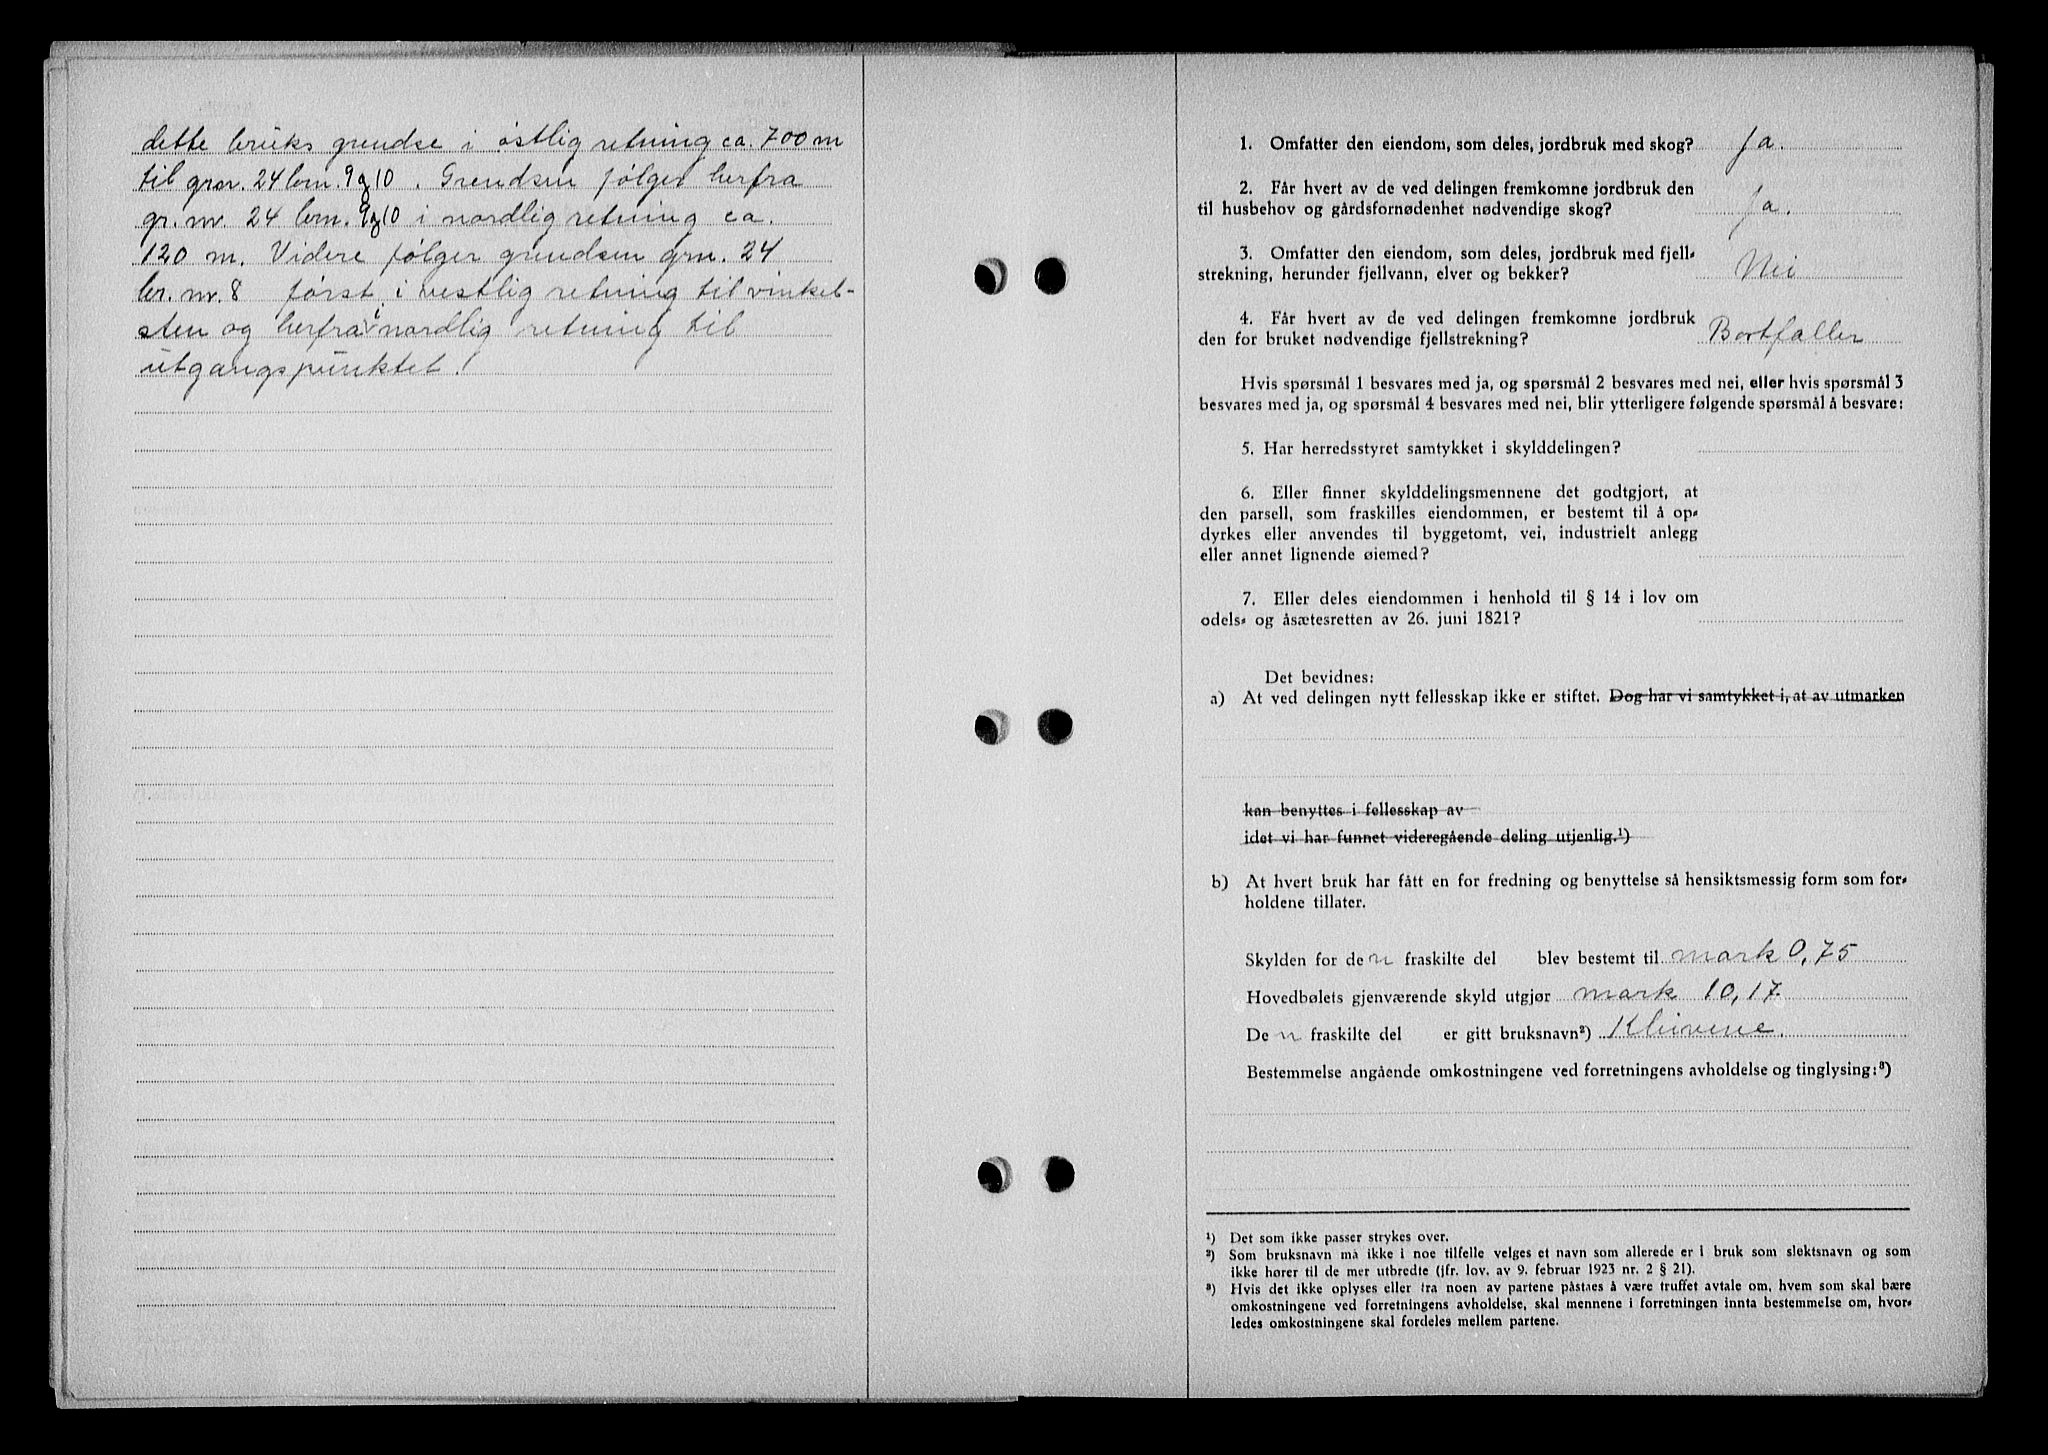 dette bruks grendse i østlig retning ca. 700 m
til grnr. 24 brn. 9 og 10. Grendsen følger herfra
gr. nr. 24 brn. 9 og 10 i nordlig retning ca.
120 m. Videre følger grendsen grn. 24
br. nr. 8 først i vestlig retning til vinkel-
sten og herfra i nordlig retning til
utgangspunktet!
1. Omfatter den eiendom, som deles, jordbruk med skog? Ja.
2. Får hvert av de ved delingen fremkomne jordbruk den
til husbehov og gårdsfornødenhet nødvendige skog? Ja.
3. Omfatter den eiendom, som deles, jordbruk med fjell-
strekning, herunder fjellvann, elver og bekker? Nei
4. Får hvert av de ved delingen fremkomne jordbruk
den for bruket nødvendige fjellstrekning? Bortfaller
Hvis spørsmål 1 besvares med ja, og spørsmål 2 besvares med nei, eller hvis spørsmål 3
besvares med ja, og spørsmål 4 besvares med nei, blir ytterligere følgende spørsmål å besvare:
5. Har herredsstyret samtykket i skylddelingen?
6. Eller finner skylddelingsmennene det godtgjort, at
den parsell, som fraskilles eiendommen, er bestemt til å op-
dyrkes eller anvendes til byggetomt, vei, industrielt anlegg
eller annet lignende øiemed?
7. Eller deles eiendommen i henhold til § 14 i lov om
odels- og åsætesretten av 26. juni 1821?
Det bevidnes:
a) At ved delingen nytt fellesskap ikke er stiftet. Dog har vi samtykket i, at av utmarken
kan benyttes i fellesskap av
idet vi har funnet videregående deling utjenlig.¹)
b) At hvert bruk har fått en for fredning og benyttelse så hensiktsmessig form som for-
holdene tillater.
Skylden for den fraskilte del blev bestemt til mark 0,75
Hovedbølets gjenværende skyld utgjør mark 10,17.
Den fraskilte del er gitt bruksnavn²) Kleivene.
Bestemmelse angående omkostningene ved forretningens avholdelse og tinglysing:³)
¹) Det som ikke passer strykes over.
²) Som bruksnavn må ikke i noe tilfelle velges et navn som allerede er i bruk som slektsnavn og som
ikke hører til de mer utbredte (jfr. lov. av 9. februar 1923 nr. 2 § 21).
³) Hvis det ikke oplyses eller fra noen av partene påstaes å være truffet avtale om, hvem som skal bære
omkostningene ved forretningens avholdelse, skal mennene i forretningen innta bestemmelse om, hvor-
ledes omkostningene skal fordeles mellem partene.